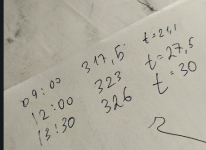 09:00 317,5 t=24,1
12:00 323 t=27,5
13:30 326 t=30